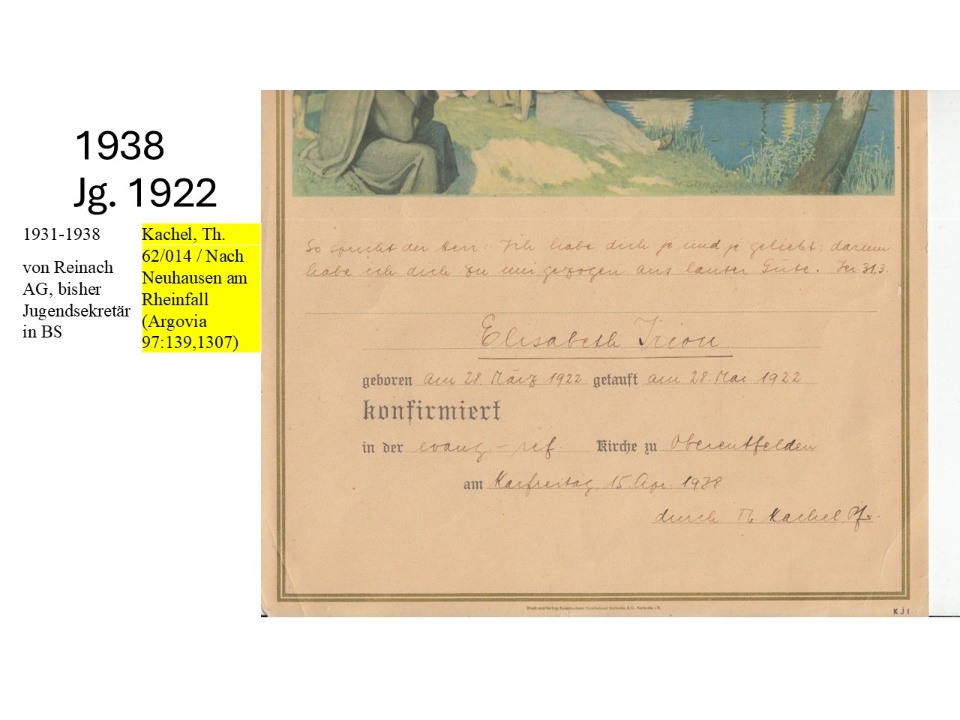 1938
Jg. 1922
1931-1938
von Reinach
AG, bisher
Jugendsekretär
in BS
Kachel, Th.
62/014 / Nach
Neuhausen am
Rheinfall
(Argovia
97:139,1307)
So spricht der Herr: Ich habe dich je und je geliebt; darum
habe ich dich zu mir gezogen aus lauter Güte. Jer 31,3.
Elisabeth Irion
geboren am 28. März 1922 getauft am 28 Mai 1922
konfirmiert
in der evang-ref. Kirche zu Oberentfelden
am Karfreitag, 15. Apr. 1938
durch Th. Kachel, Pfr.
K J I